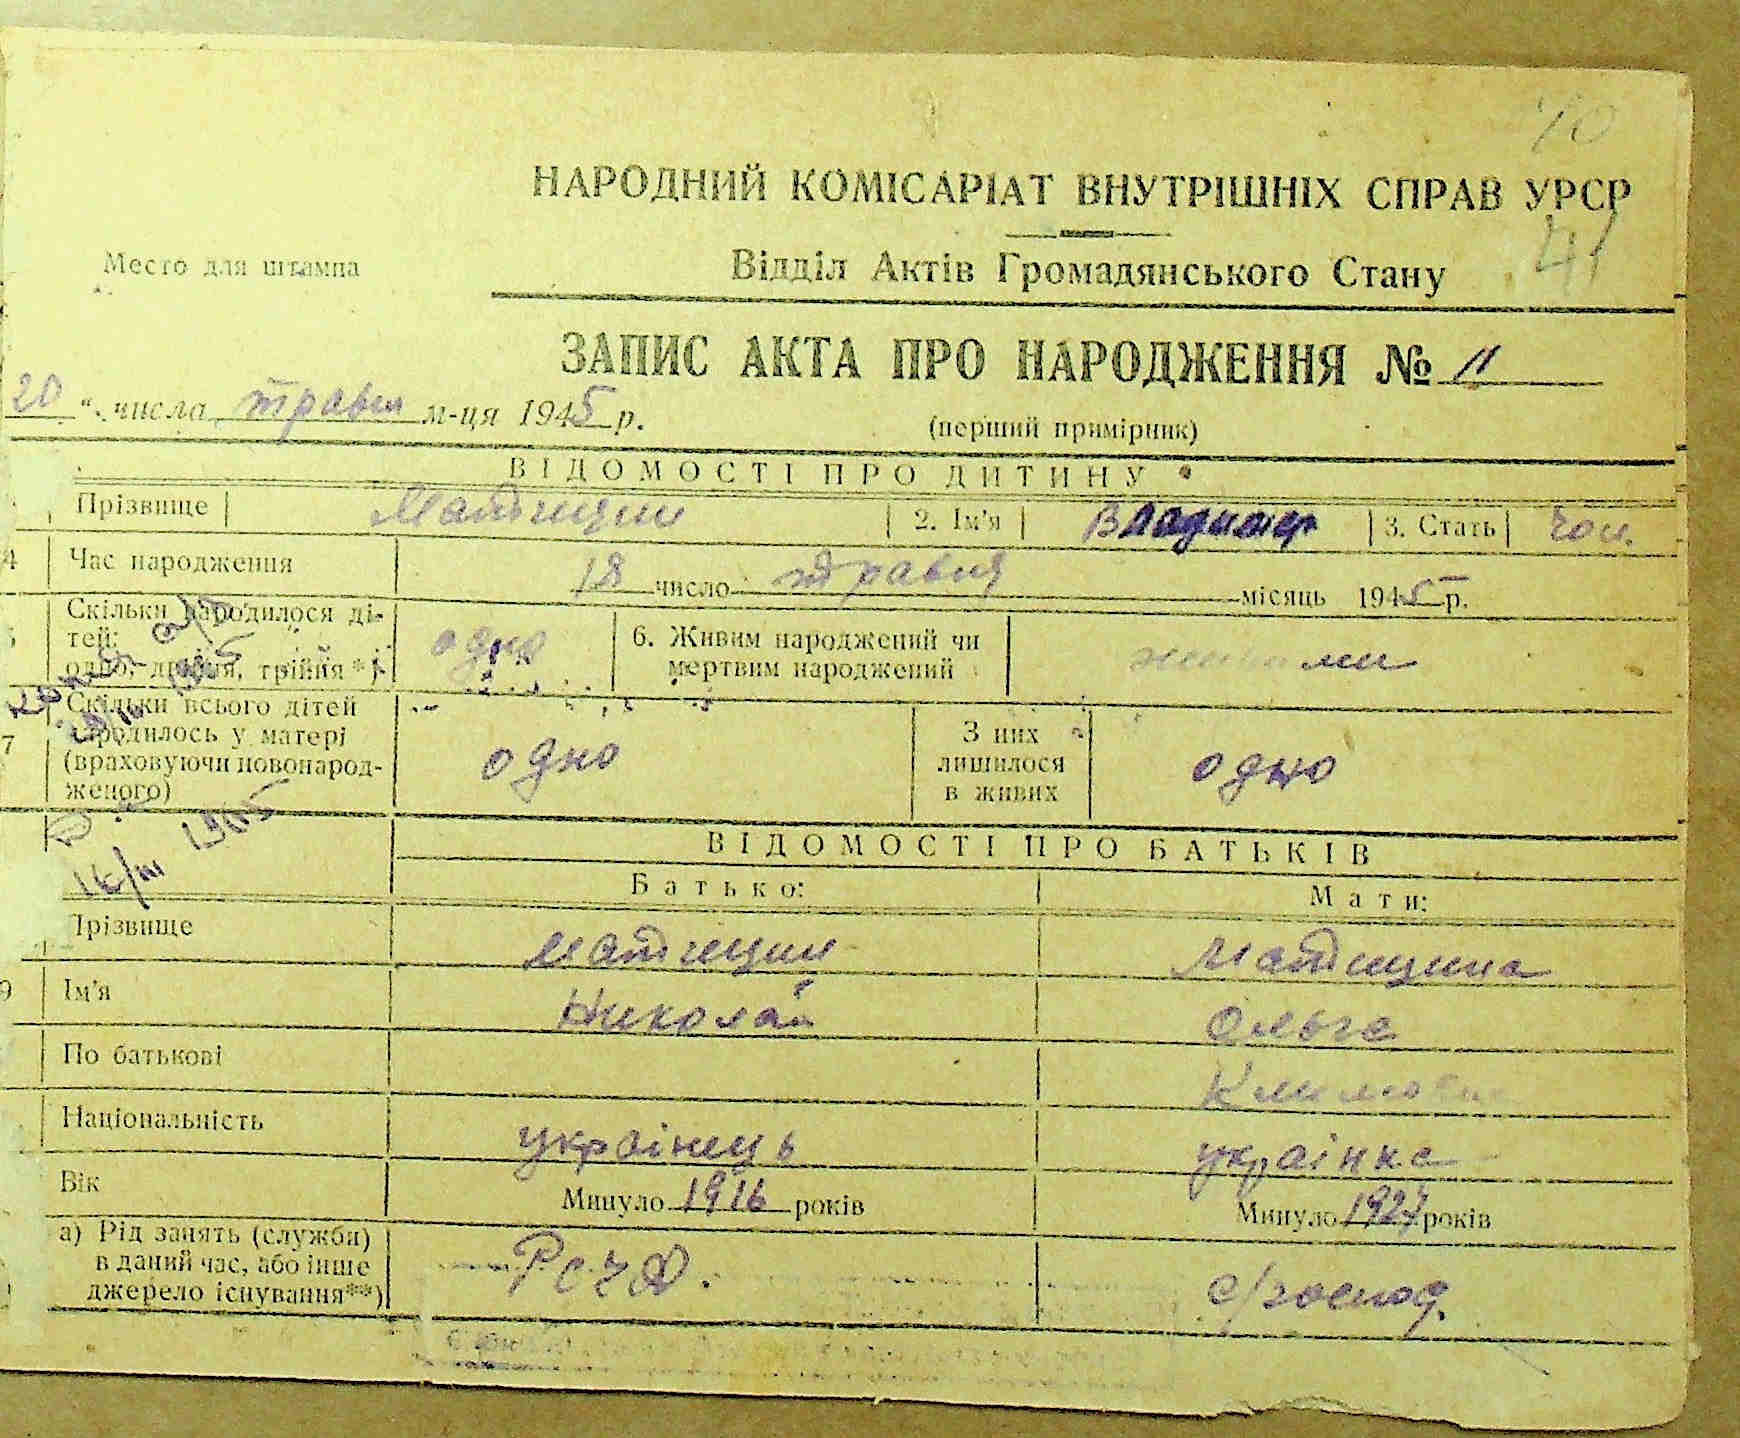 40
НАРОДНИЙ КОМІСАРІАТ ВНУТРІШНІХ СПРАВ УРСР
41
Место для штампа
Відділ Актів Громадянського Стану
ЗАПИС АКТА ПРО НАРОДЖЕННЯ № 11
20 " числа травня м-ця 1945 р.
(перший примірник)
ВІДОМОСТІ ПРО ДИТИНУ
Прізвище Матіиции 2. Ім'я Владимир 3. Стать чол.
4 Час народження 18 число травня місяць 1945 р.
Скільки народилося ді-
тей:
одно, двійня, трійня *) одно 6. Живим народжений чи
мертвим народжений живими
7 Скільки всього дітей
народилось у матері
(враховуючи новонарод-
женого) одно З них
лишилося
в живих одно
ВІДОМОСТІ ПРО БАТЬКІВ
Батько: Мати:
Прізвище
9 Ім'я Николай Ольга
По батькові
Національність українець українка
Вік Минуло 1916 років Минуло 1924 років
а) Рід занять (служби)
в даний час, або інше
джерело існування**) РСЧА. с/господ.